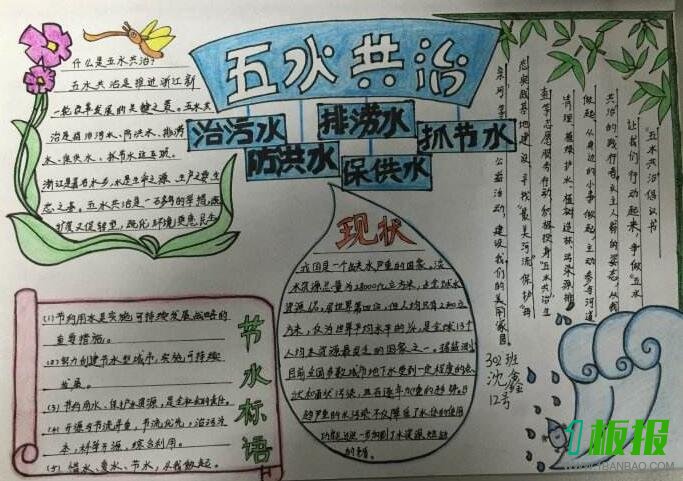 五水共治
治污水
防洪水
排涝水
保供水
抓节水
什么是五水共治?
五水共治是推进浙江新
一轮改革发展的关键之策。五水共
治是指治污水、防洪水、排涝
水、保供水、抓节水这五项。
浙江是著名水乡,水是生命之源、生产之要、生
态之基。五水共治是一举多得的举措,既
扩投资又促转型,既优环境更惠民生
现状
我国是一个缺水严重的国家。淡
水资源总量为28000亿立方米,占全球水
资源的6%,居世界第四位,但人均只有2300立
方米,仅为世界平均水平的1/4,是全球13个
人均水资源最贫乏的国家之一。
目前全国多数城市地下水受到一定程度的点
状和面状污染,且有逐年加重的趋势。日
趋严重的水污染不仅降低了水体的使用
功能,进一步加剧了水资源短缺
的矛盾
节水标语
(1)节约用水是实施可持续发展战略的
重要措施。
(2)努力创建节水型城市,实施可持续
发展。
(3)节约用水、保护水资源,是全社会的责任。
(4)开源与节流并重,节流优先,治污为
本,科学开源,综合利用。
(5)惜水、爱水、节水,从我做起。
“五水共治”倡议书
让我们行动起来,争做“五水
共治”的践行者,以主人翁的姿态,从我
做起,从身边的小事做起,主动参与河道
清理、植绿护水、植树造林、污染源排
查等志愿服务行动,积极投身“五水共治”生
态实践基地建设、寻找“最美河流”保护“母
亲河”等公益活动,建设我们的美丽家园
302班
沈鑫
12号
1板报
WWW.1BANBAO.COM